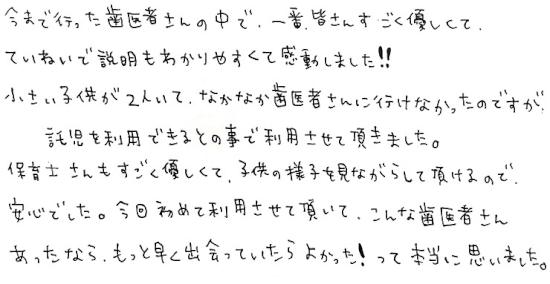 今まで行った歯医者さんの中で、一番、皆さんすごく優しくて、
ていねいで説明もわかりやすくて感動しました!!
小さい子供が2人いて、なかなか歯医者さんに行けなかったのですが、
託児を利用できるとの事で利用させて頂きました。
保育士さんもすごく優しくて、子供の様子を見ながらして頂けるので、
安心でした。今回初めて利用させて頂いて、こんな歯医者さん
あったなら、もっと早く出会っていたらよかった!って本当に思いました。